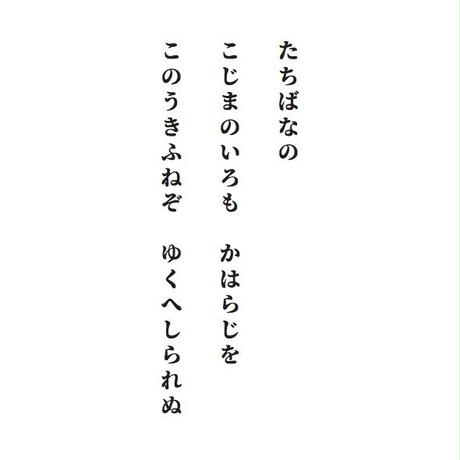 たちばなの
こじまのいろも　かはらじを
このうきふねぞ　ゆくへしられぬ